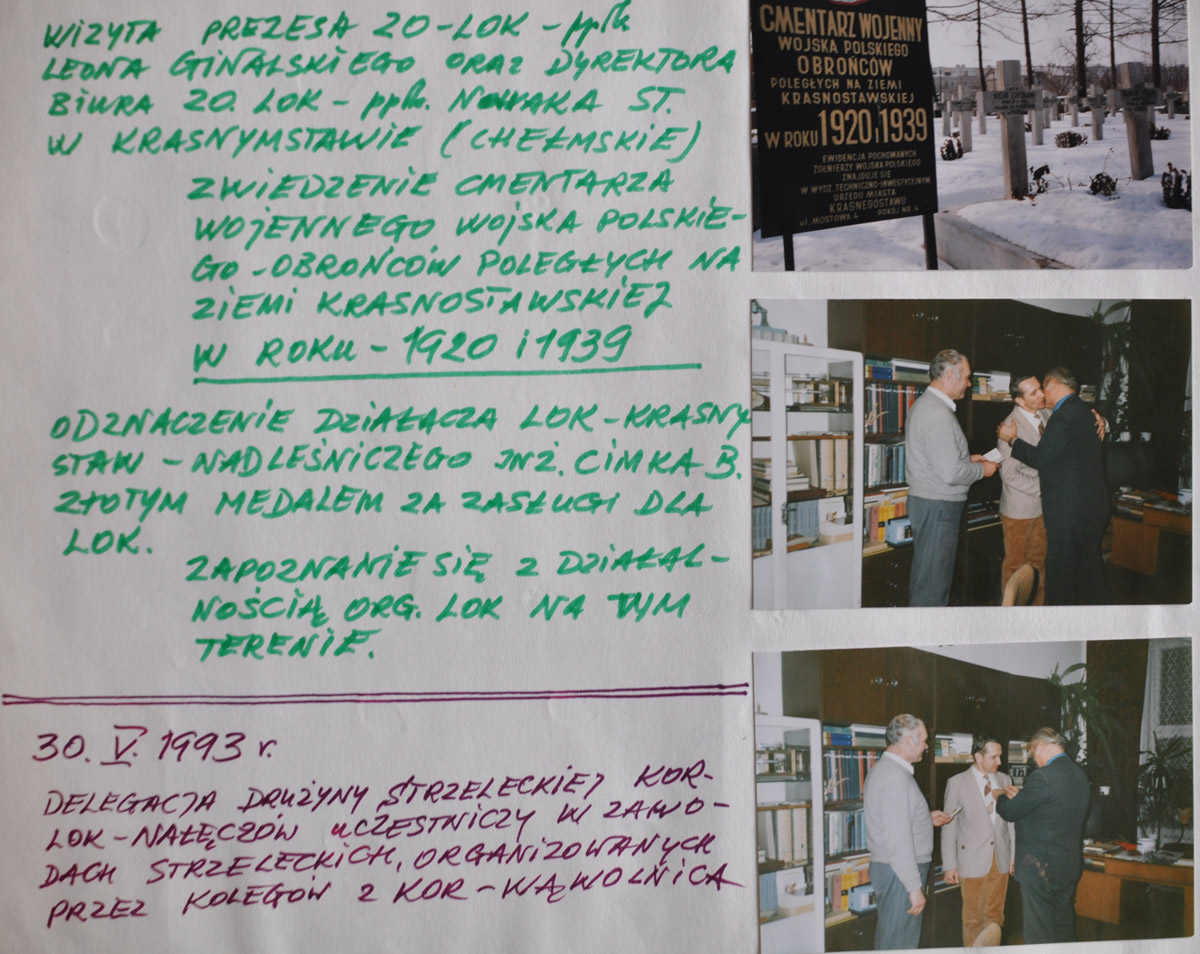 WIZYTA PREZESA ZO-LOK - ppłk
LEONA GINALSKIEGO ORAZ DYREKTORA
BIURA ZO. LOK - ppłk. NOWAKA ST.
W KRASNYMSTAWIE (CHEŁMSKIE)
ZWIEDZENIE CMENTARZA
WOJENNEGO WOJSKA POLSKIE-
GO - OBROŃCÓW POLEGŁYCH NA
ZIEMI KRASNOSTAWSKIEJ
W ROKU - 1920 i 1939
ODZNACZENIE DZIAŁACZA LOK - KRASNY
STAW - NADLEŚNICZEGO INŻ. CIMKA B.
ZŁOTYM MEDALEM ZA ZASŁUGI DLA
LOK.
ZAPOZNANIE SIĘ Z DZIAŁAL-
NOŚCIĄ ORG. LOK NA TYM
TERENIE.
30. V. 1993 r.
DELEGACJA DRUŻYNY STRZELECKIEJ KOR-
LOK - NAŁĘCZÓW UCZESTNICZY W ZAWO-
DACH STRZELECKICH, ORGANIZOWANYCH
PRZEZ KOLEGÓW Z KOR - WĄWOLNICA
CMENTARZ WOJENNY
WOJSKA POLSKIEGO
OBROŃCÓW
POLEGŁYCH NA ZIEMI
KRASNOSTAWSKIEJ
W ROKU 1920 i 1939
EWIDENCJA POCHOWANYCH
ŻOŁNIERZY WOJSKA POLSKIEGO
ZNAJDUJE SIĘ
W WYDZ. TECHNICZNO-INWESTYCYJNYM
URZĘDU MIASTA
KRASNEGOSTAWU
ul. MOSTOWA 4 POKÓJ NR 4